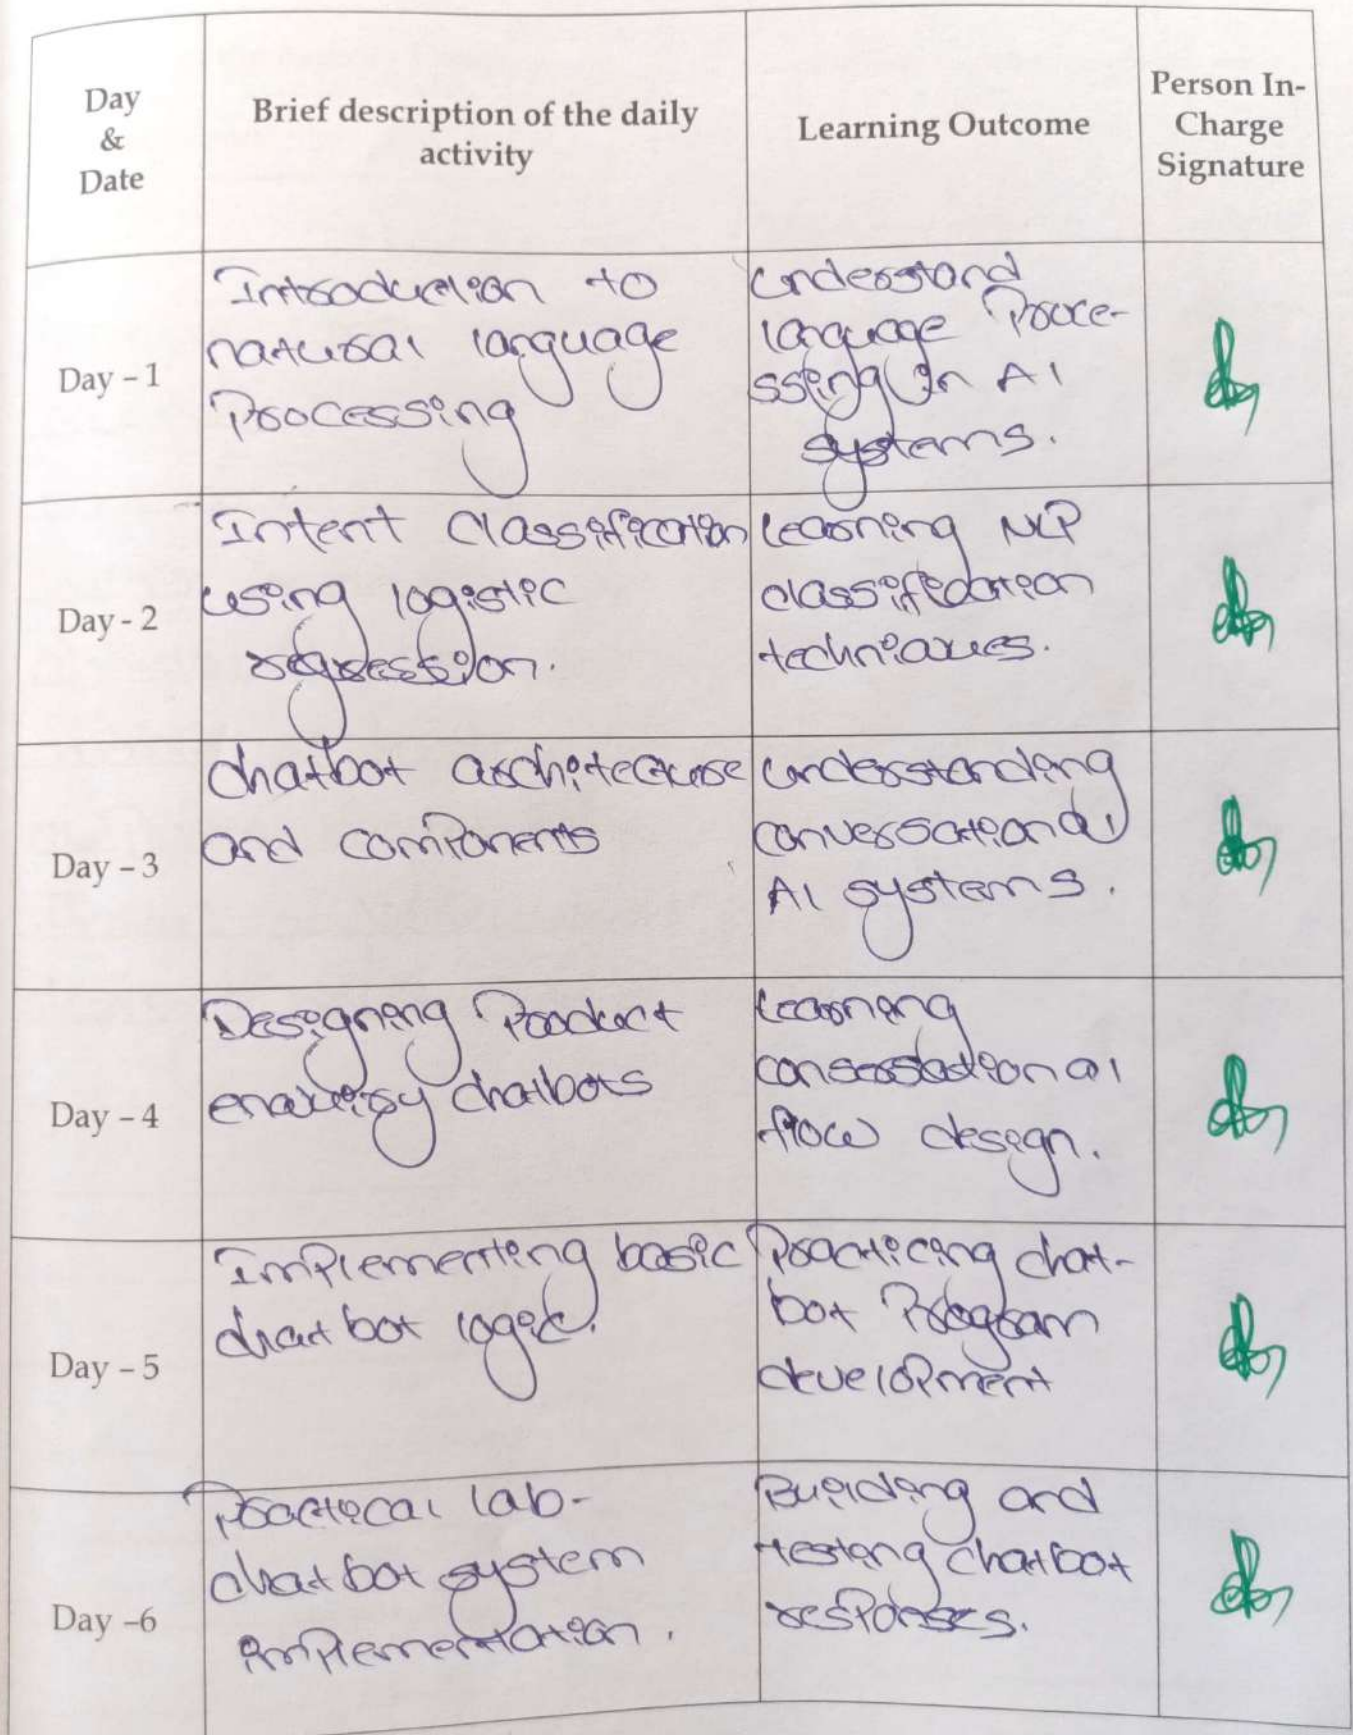 Day
&
Date
Brief description of the daily
activity
Learning Outcome
Person In-
Charge
Signature
Day - 1
Introduction to
natural language
Processing
Understand
language Proce-
ssing in AI
systems.
Day - 2
Intent Classification
using logistic
regression.
Learning NLP
classification
techniques.
Day - 3
chatbot architecture
and components
understanding
conversational
AI systems.
Day - 4
Designing Product
enquiry chatbots
Learning
conversational
flow design.
Day - 5
Implementing basic
chat bot logic.
Practicing chat-
bot Program
development
Day -6
Practical lab-
chat bot system
implementation.
Building and
testing chatbot
responses.